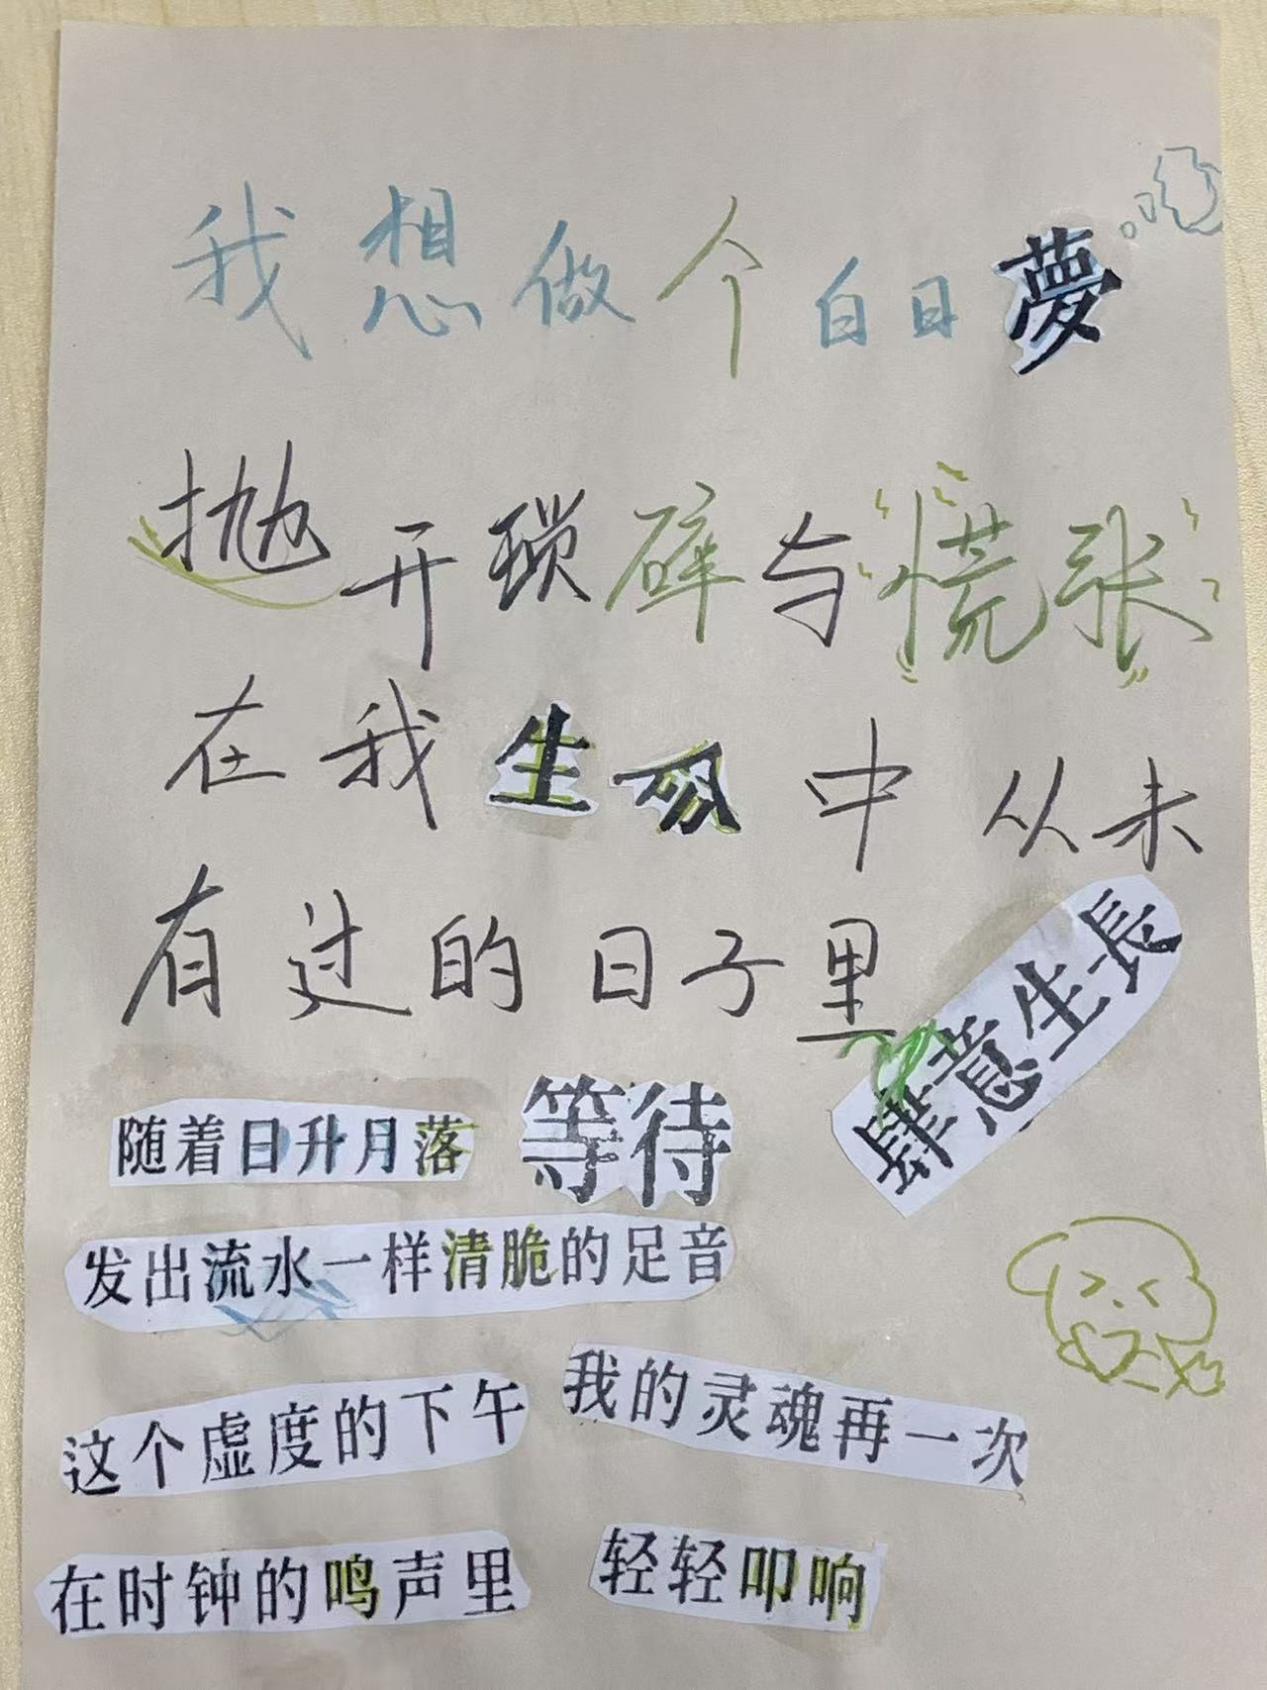 我想做个白日夢
抛开琐碎与慌张
在我生命中从未
有过的日子里
肆意生長
随着日升月落 等待
发出流水一样清脆的足音
这个虚度的下午 我的灵魂再一次
在时钟的鸣声里 轻轻叩响